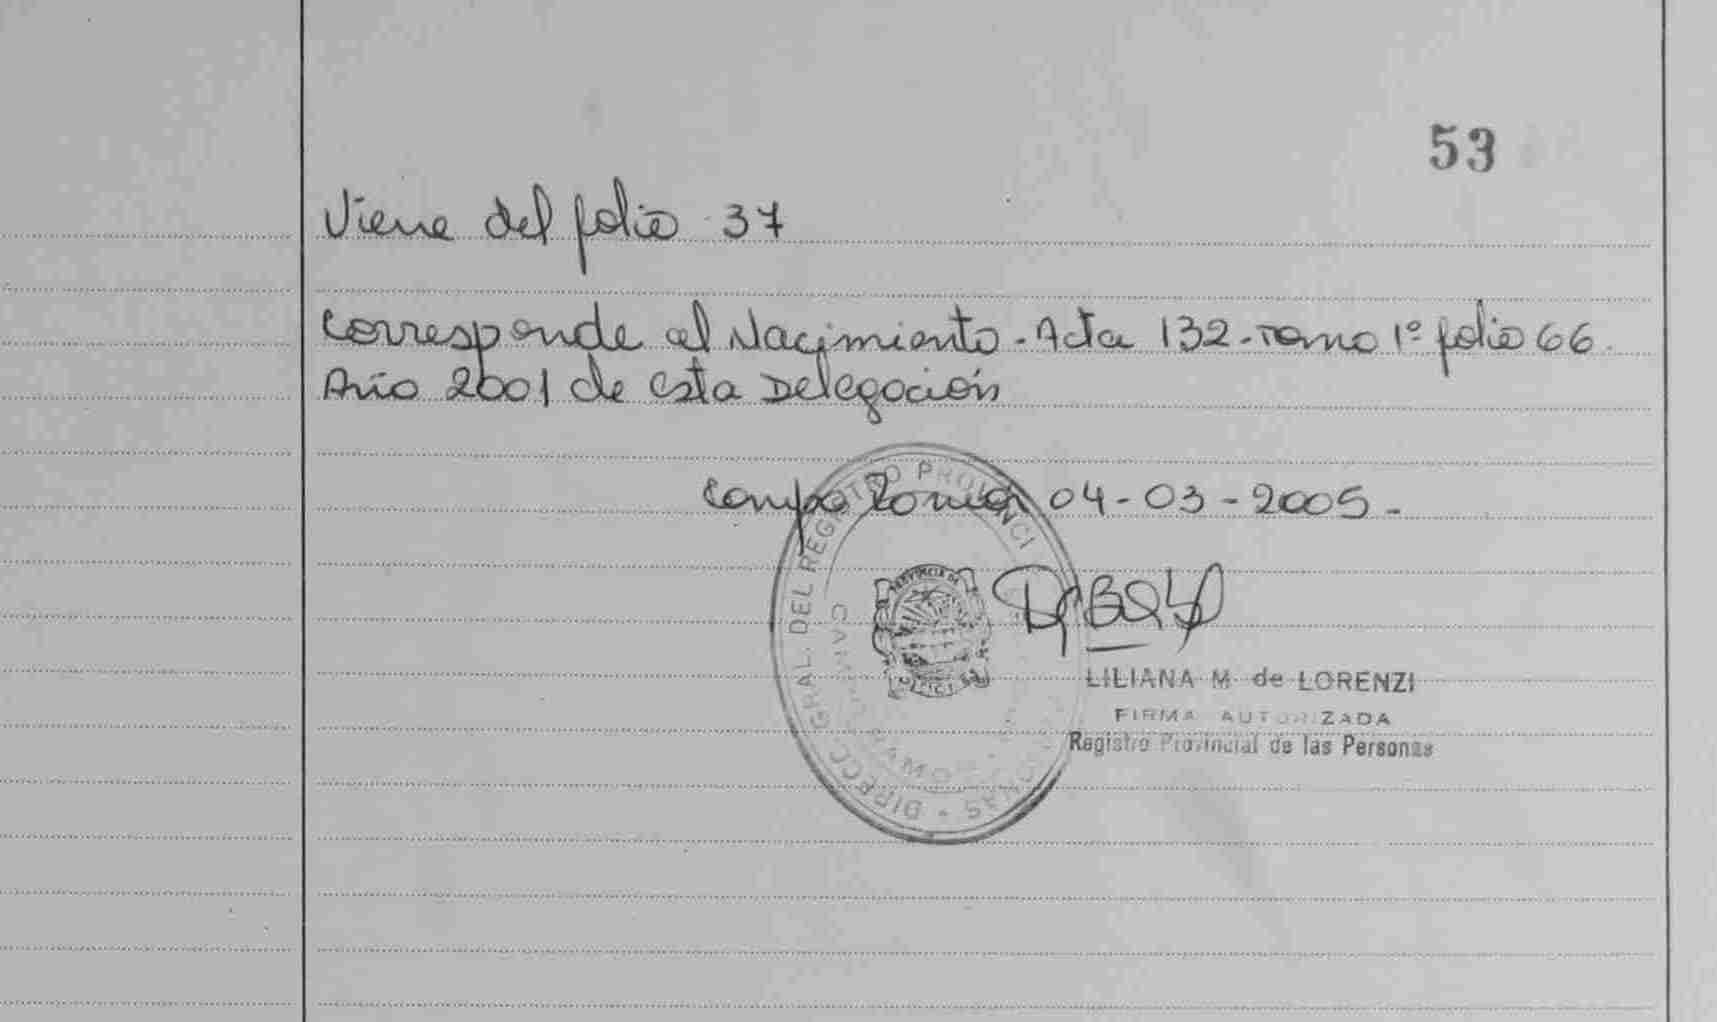 53
Viene del folio 37
Corresponde al Nacimiento - Acta 132 - Tomo 1º folio 66.
Año 2001 de esta Delegación
04-03-2005-
DIRECC. GRAL. DEL REGISTRO PROVINCI
LILIANA M. de LORENZI
FIRMA AUTORIZADA
Registro Provincial de las Personas